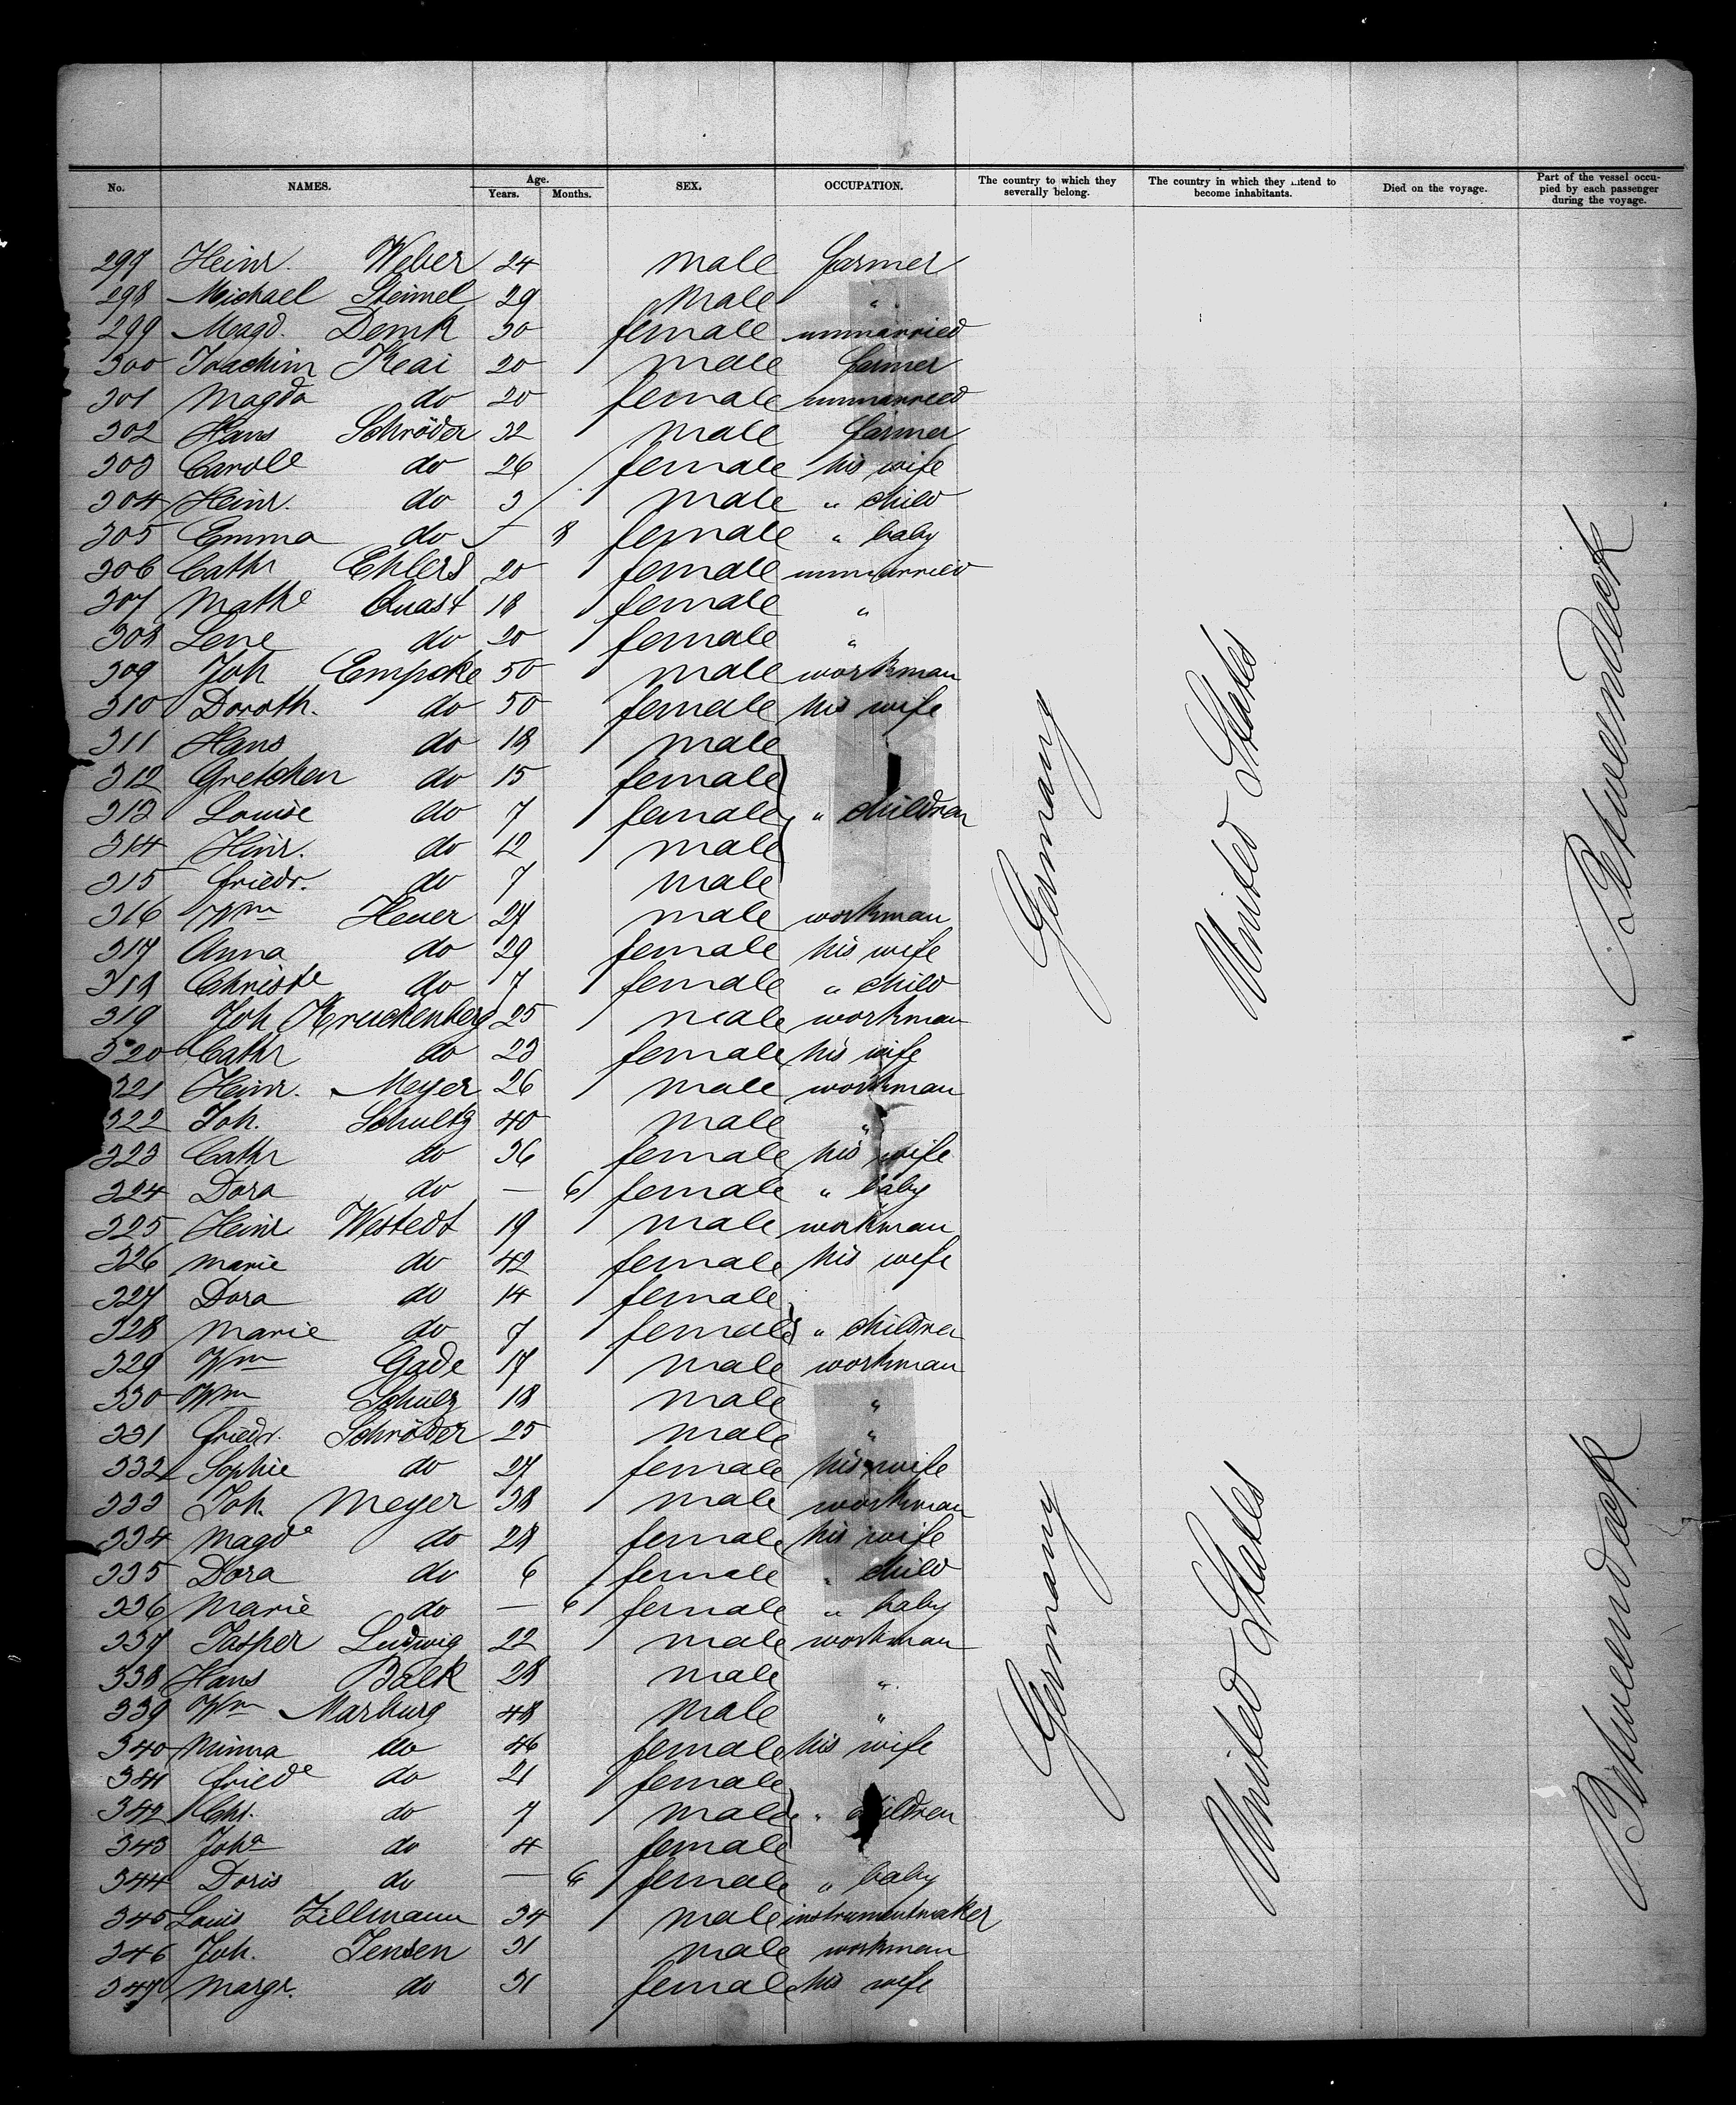 No. NAMES. Age. Years. Months. SEX. OCCUPATION. The country to which they severally belong. The country in which they intend to become inhabitants. Died on the voyage. Part of the vessel occupied by each passenger during the voyage.
297 Heinr. Weber 24 male farmer
298 Michael Steimel 29 male "
299 Magd. Demk 30 female unmarried
300 Joachim Keai 20 male farmer
301 Magda do 20 female unmarried
302 Hans Schröder 32 male farmer
303 Carole do 26 female his wife
304 Heinr. do 3 male " child
305 Emma do — 8 female " baby
306 Cathr Ehlers 20 female unmarried
307 Mathe Quast 18 female "
308 Lene do 20 female "
309 Joh Empcke 50 male workman
310 Doroth. do 50 female his wife
311 Hans do 18 male
312 Gretchen do 15 female
313 Louise do 7 female " children
314 Hinr. do 12 male
315 Friedr. do 7 male
316 Wm Heuer 27 male workman
317 Anna do 29 female his wife
318 Christe do 7 female " child
319 Joh Kruckenberg 25 male workman
320 Cathr do 23 female his wife
321 Heinr. Meyer 26 male workman
322 Joh. Schultz 40 male "
323 Cathr do 36 female his wife
324 Dora do — 6 female " baby
325 Heinr Westedt 19 male workman
326 Marie do 42 female his wife
327 Dora do 14 female
328 Marie do 7 female " children
329 Wm Gade 17 male workman
330 Wm Schulz 18 male "
331 Friedr. Schröder 25 male "
332 Sophie do 27 female his wife
333 Joh. Meyer 38 male workman
334 Magde do 28 female his wife
335 Dora do 6 female " child
336 Marie do — 6 female " baby
337 Jasper Ludwig 22 male workman
338 Hans Balk 28 male "
339 Wm Marburg 48 male "
340 Minna do 46 female his wife
341 Friede do 21 female
342 Chr. do 7 male " children
343 Joha do 4 female
344 Doris do — 6 female " baby
345 Louis Zillmann 34 male instrumentmaker
346 Joh. Jensen 31 male workman
347 Margr. do 31 female his wife
Germany
United States
Betweendeck
Germany
United States
Betweendeck